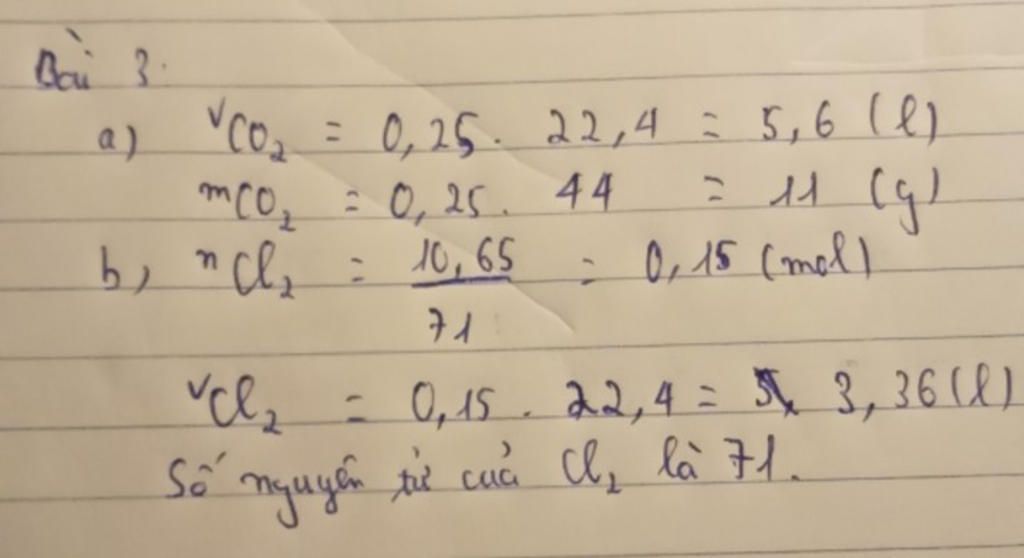 Bài 3.
a) VCO₂ = 0,25. 22,4 = 5,6 (l)
mCO₂ = 0,25. 44 = 11 (g)
b) nCl₂ = 10,65/71 = 0,15 (mol)
VCl₂ = 0,15. 22,4 = 3,36 (l)
Số nguyên tử của Cl₂ là 71.